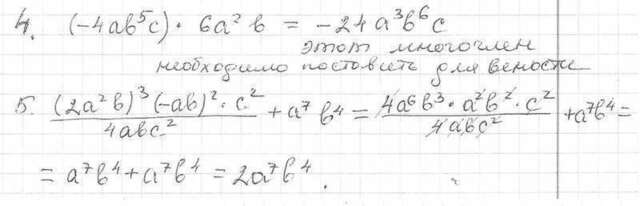 4. (-4ab⁵c) · 6a²b = -24a³b⁶c
этот многочлен
необходимо поставить для вености
5. \frac{(2a²b)³(-ab)² · c²}{4abc²} + a⁷b⁴ = \frac{4a⁶b³ · a²b² · c²}{4abc²} + a⁷b⁴ =
= a⁷b⁴ + a⁷b⁴ = 2a⁷b⁴.